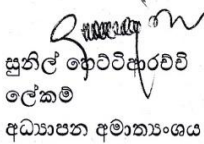 සුනිල් හෙට්ටිආරච්චි
ලේකම්
අධ්‍යාපන අමාත්‍යංශය